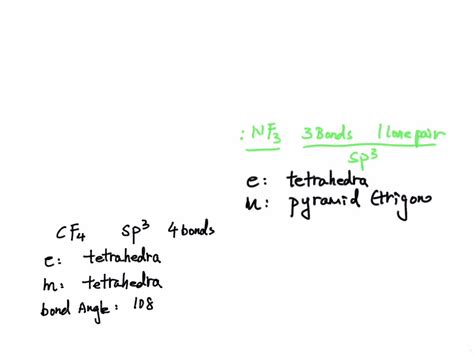 : NF₃ 3 Bonds 1 lone pair
sp³
e: tetrahedra
m: pyramid (trigono
CF₄ sp³ 4 bonds
e: tetrahedra
m: tetrahedra
bond Angle: 108